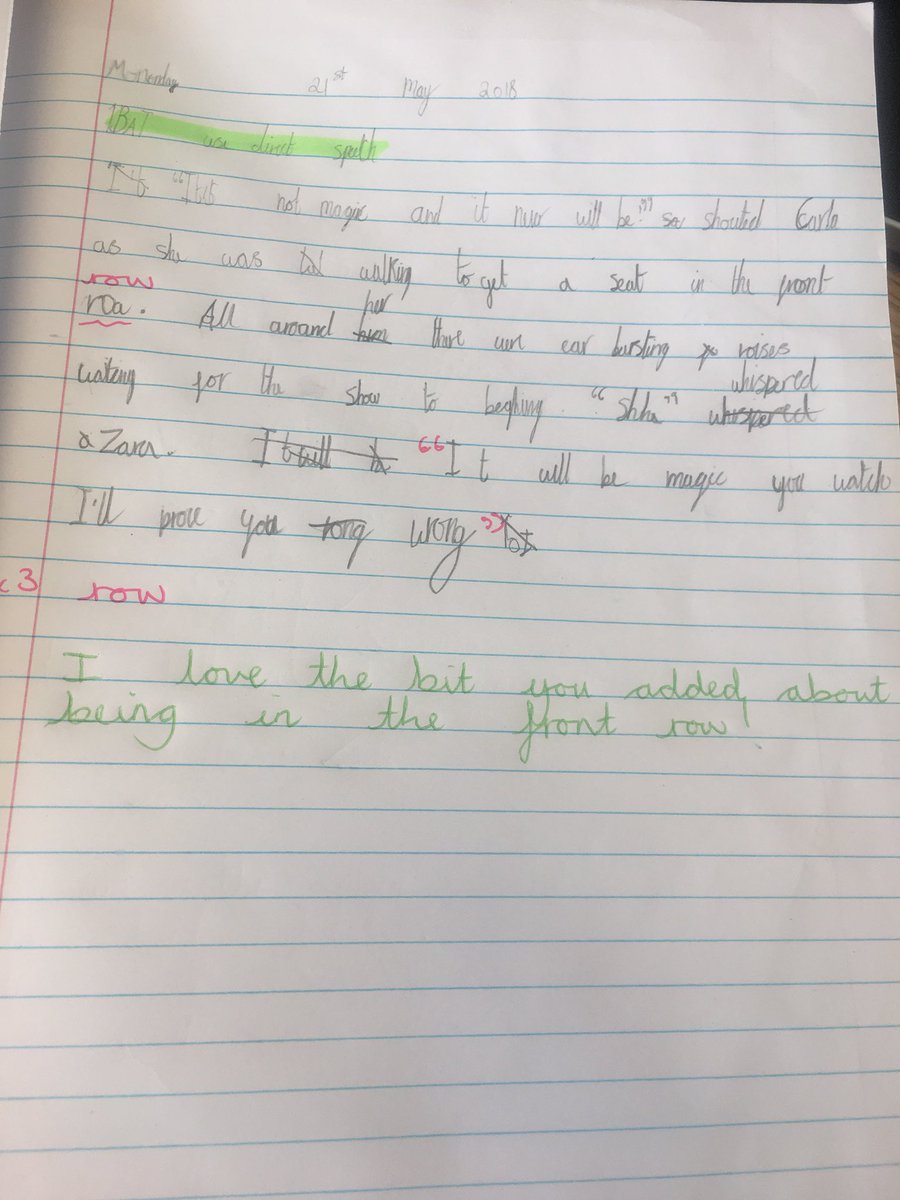 Monenday 21st May 2018
IBAT use direct speeth
not magic and it nuer will be!" shouted Carla
as she was walking to get a seat in the pront
row
roa. All around her thare uere ear bursting voises
uaiteng for tha show to beghing. "Shhe" whispered
Zara. "It will be magic you watch
I'll prove you wrong"
c3 row
I love the bit you added about
being in the front row!